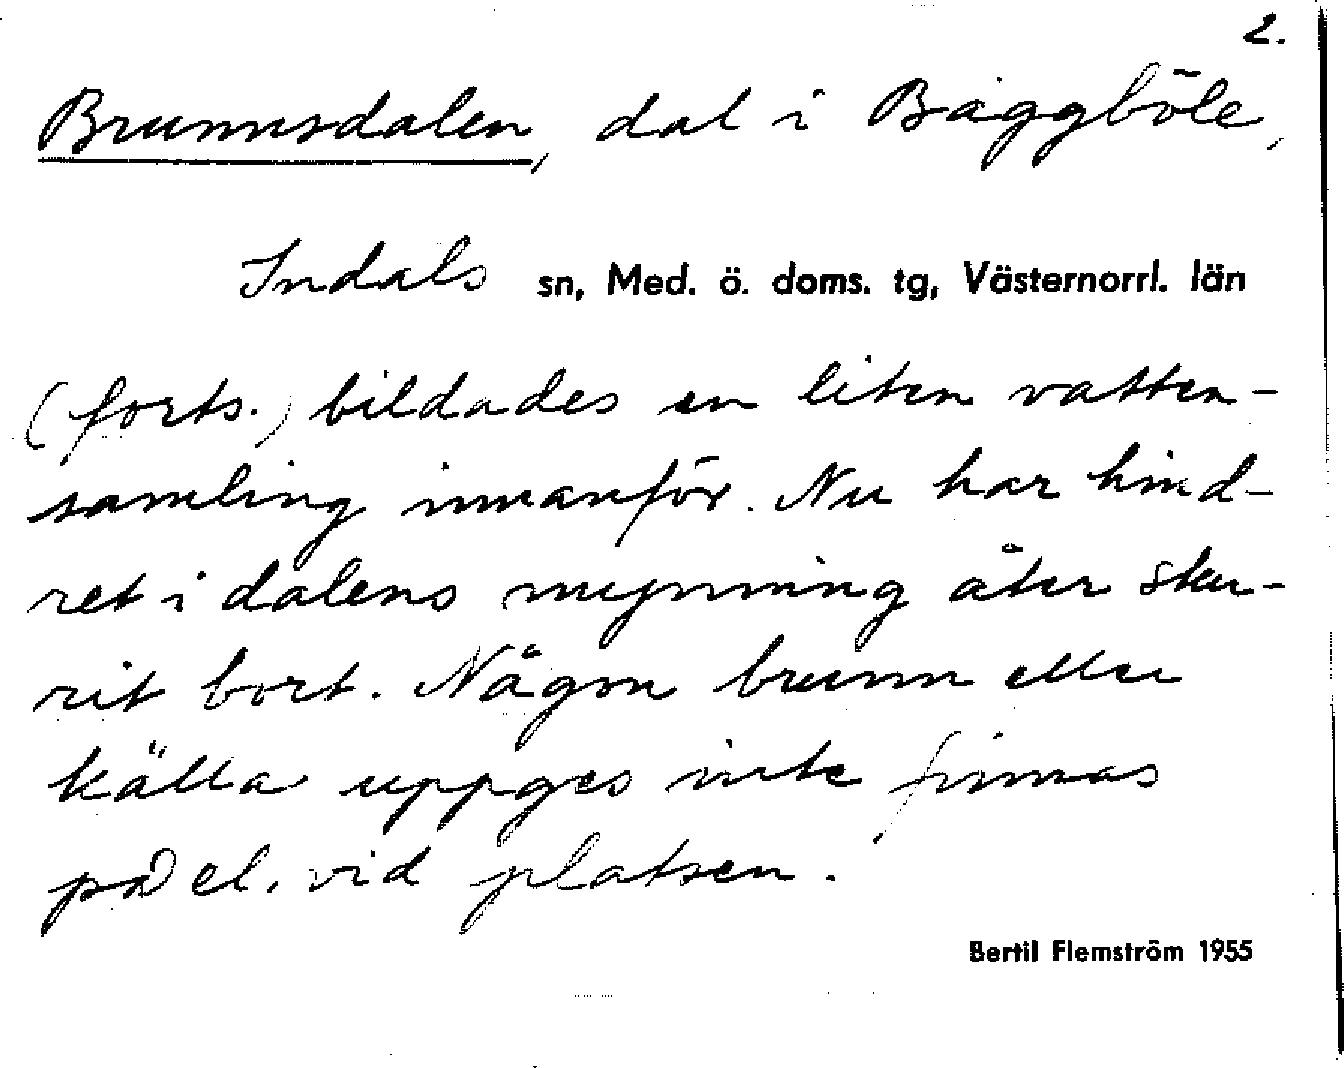 2.
Brunnsdalen, dal i Bäggböle,
Indals sn, Med. ö. doms. tg, Västernorrl. län
(forts.) bildades en liten vatten-
samling innanför. Nu har hind-
ret i dalens mynning åter sku-
rit bort. Någon brunn eller
källa uppges inte finnas
på el. vid platsen.
Bertil Flemström 1955